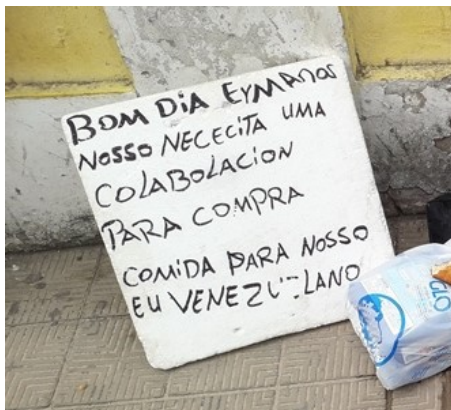 BOM DIA EYMANOS
NOSSO NECECITA UMA
COLABOLACION
PARA COMPRA
COMIDA PARA NOSSO
EU VENEZUELANO
GLO